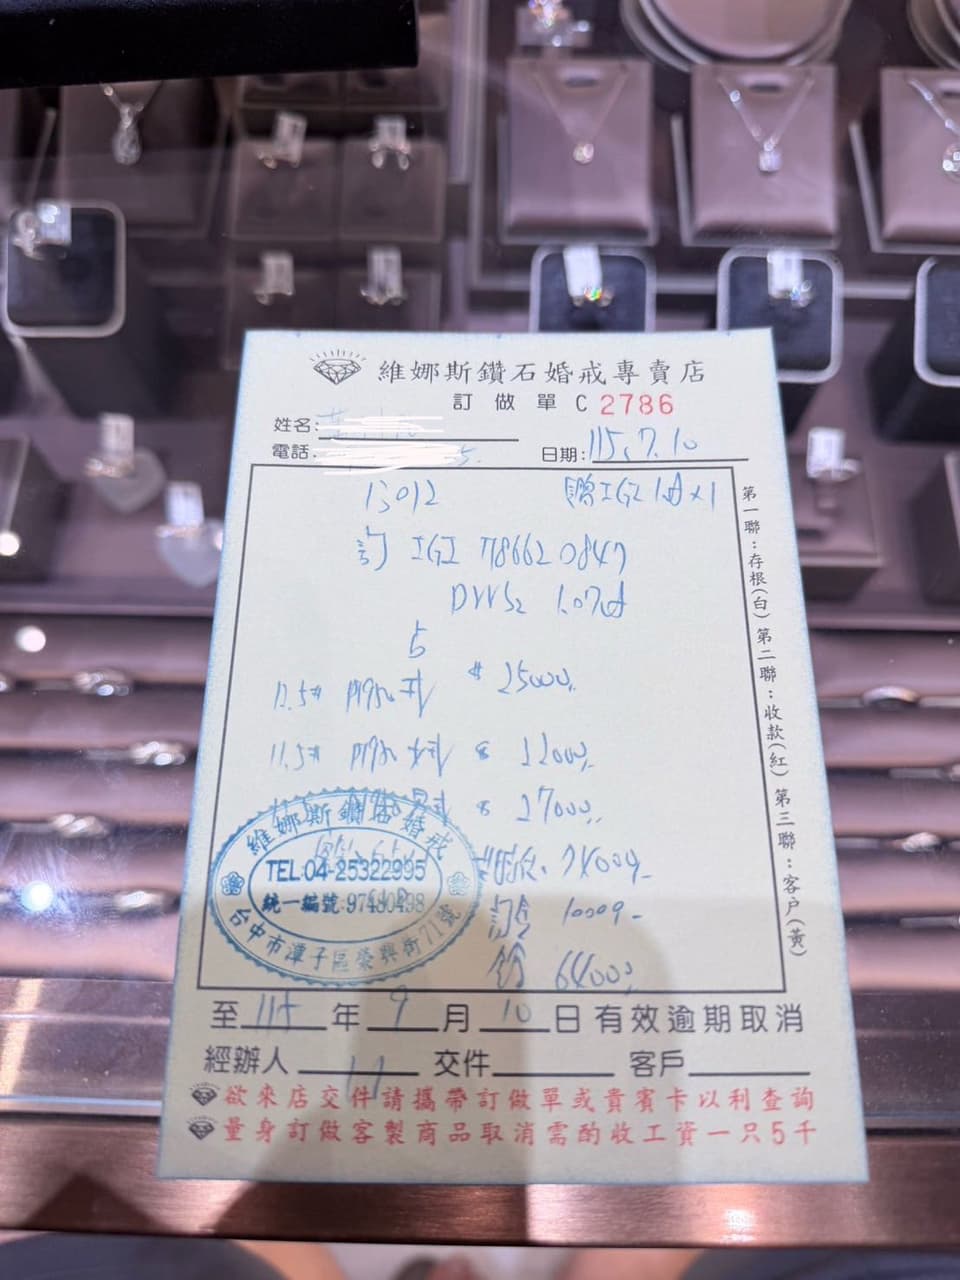 維娜斯鑽石婚戒專賣店
訂做單 C 2786
姓名:
電話:
日期: 115.7.10
13012
贈IGI 1ct x 1
訂 IGI 786620847
DVVS2 1.07ct
$ 25000.
12.5# Pt950
11.5# Pt950 女戒 $ 22000.-
$ 27000.-
74000.-
訂金 10000.-
餘 64000.-
維娜斯鑽石婚戒
TEL:04-25322995
統一編號:97480498
台中市潭子區榮興街71號
至 115 年 9 月 10 日有效逾期取消
經辦人 交件 客戶
欲來店交件請攜帶訂做單或貴賓卡以利查詢
量身訂做客製商品取消需酌收工資一只5千
第一聯:存根(白) 第二聯:收款(紅) 第三聯:客戶(黃)